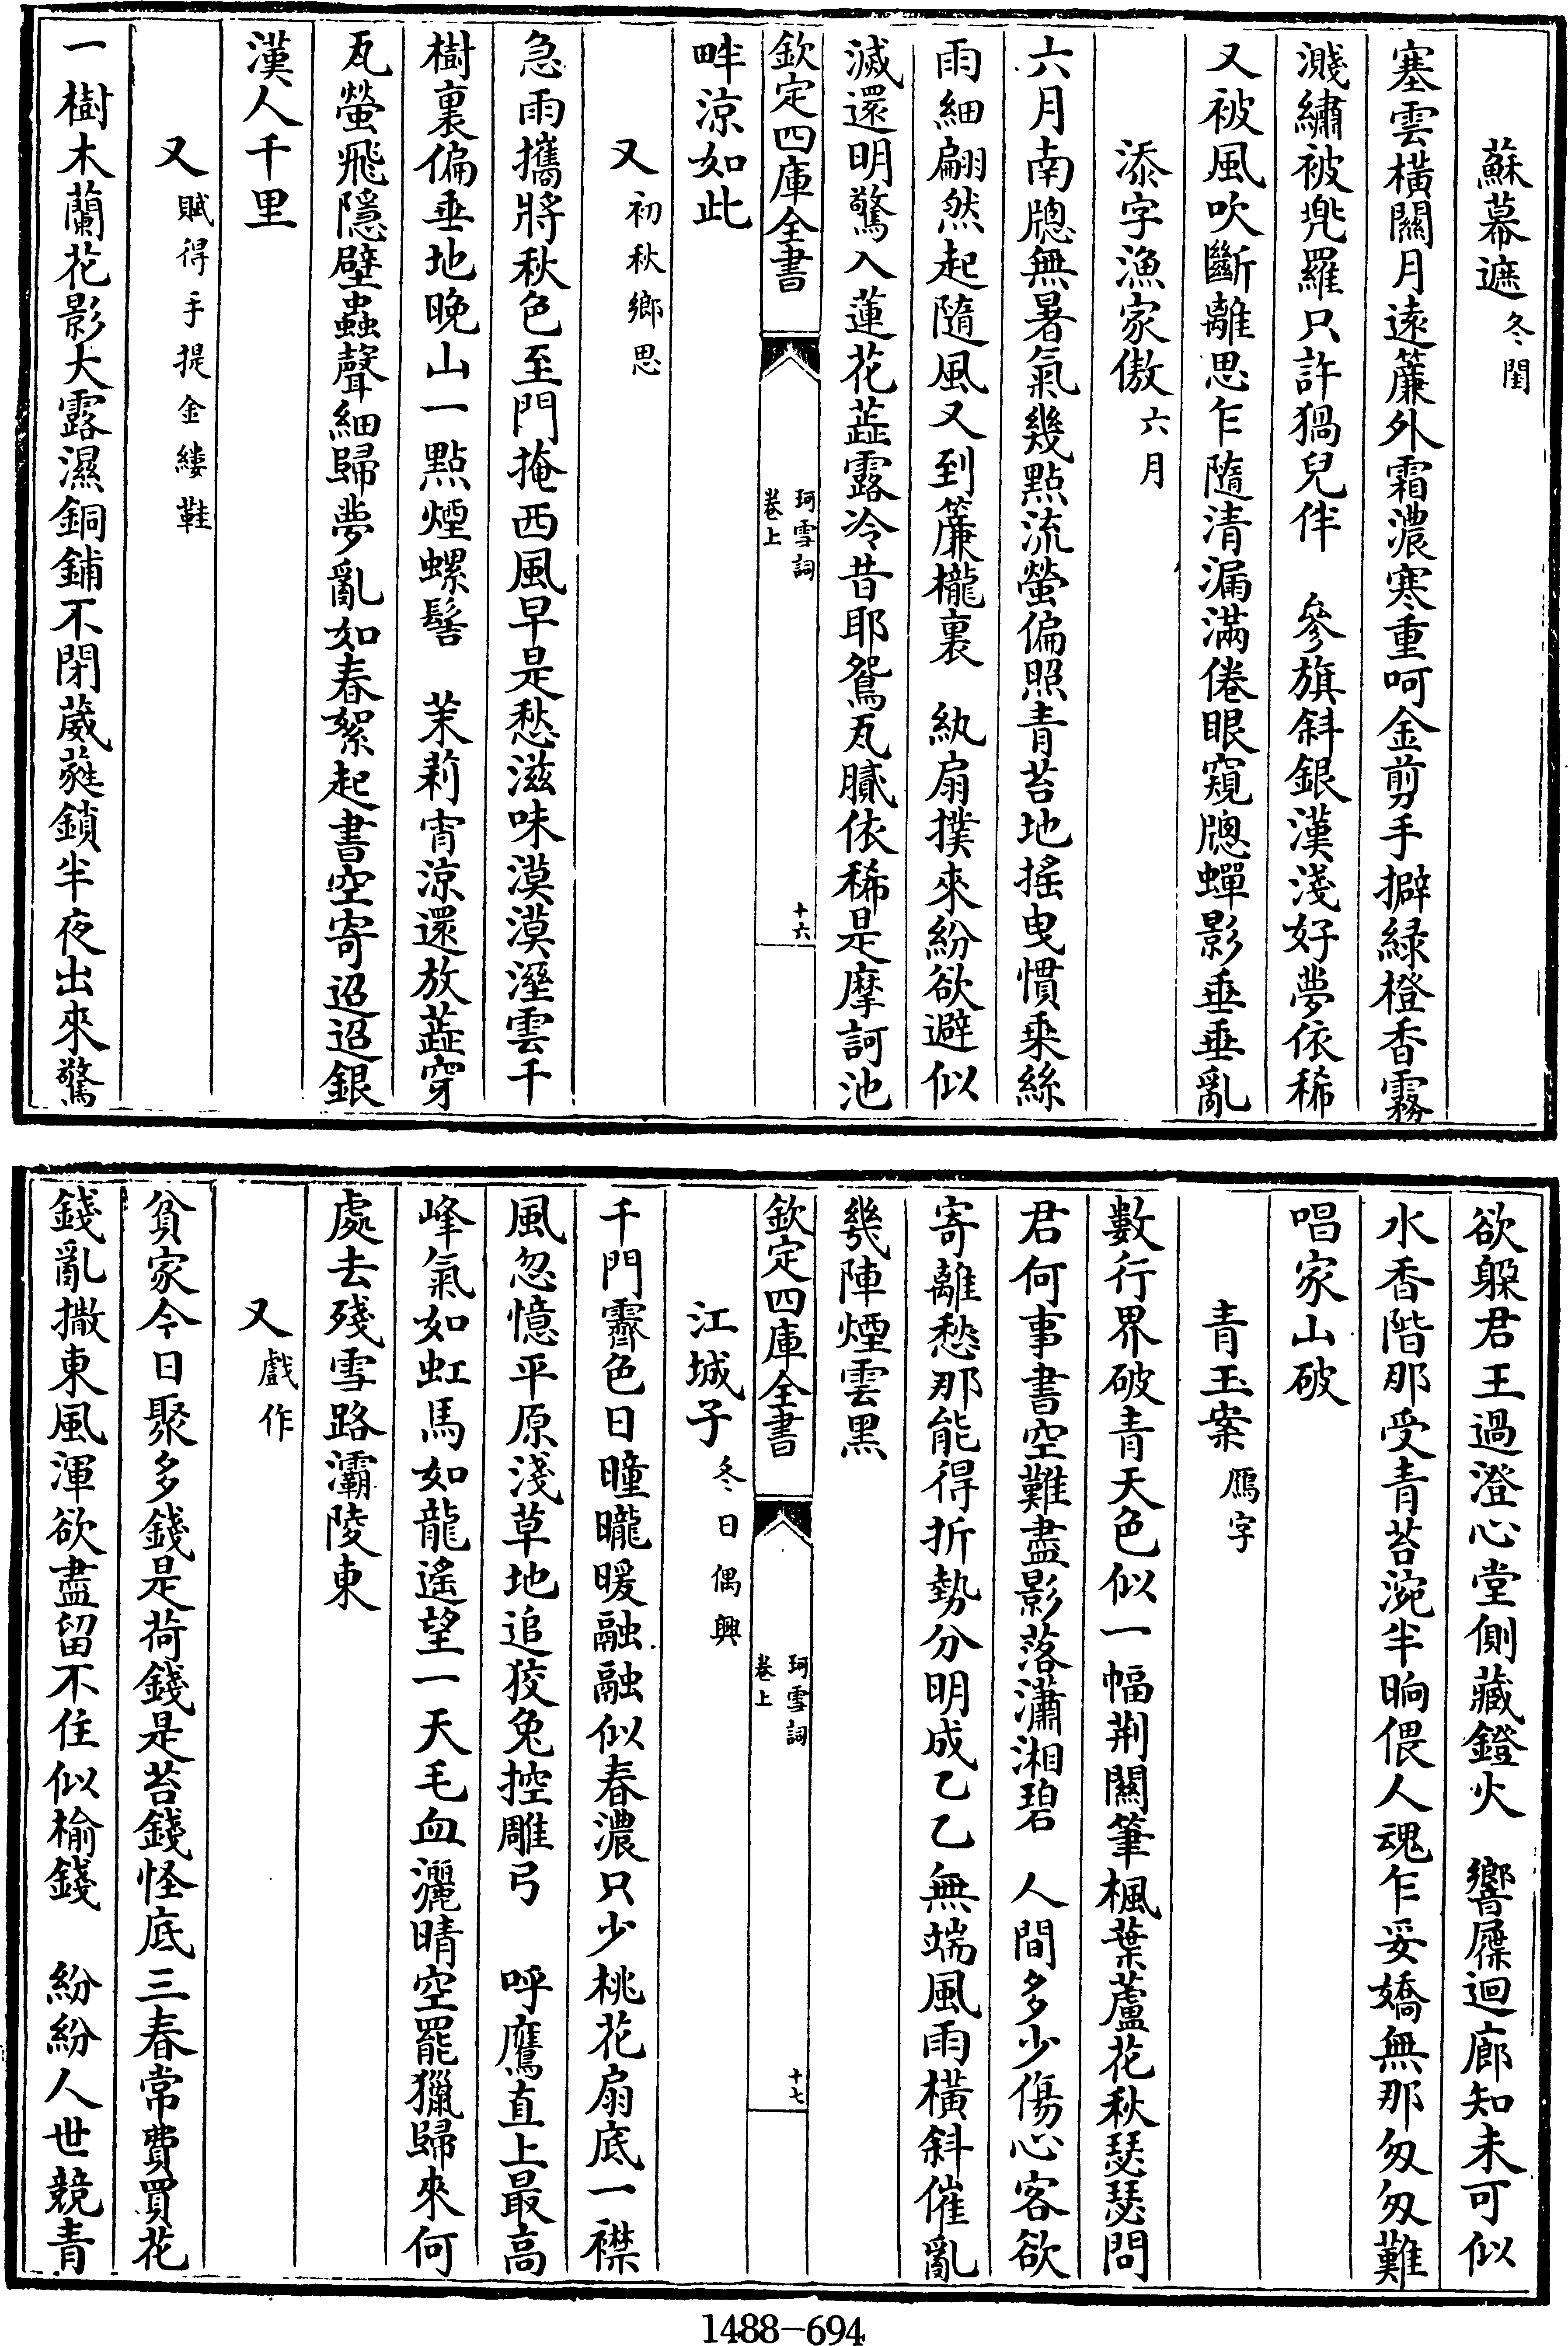 蘇幕遮冬閨
塞雲橫關月遠簾外霜濃寒重呵金剪手擗綠橙香霧
濺繡被兠羅只許猧兒伴　參旗斜銀漢淺好夢依稀
又被風吹斷離思乍隨清漏滿倦眼窺牕蟬影垂垂亂
添字漁家傲六月
六月南牕無暑氣幾點流螢偏照青苔地搖曳慣乘絲
雨細翩然起隨風又到簾櫳裏　紈扇撲來紛欲避似
滅還明驚入蓮花蕋露冷昔耶鴛瓦膩依稀是摩訶池
欽定四庫全書
珂雪詞
卷上
十六
畔涼如此
又初秋鄉思
急雨攜將秋色至門掩西風早是愁滋味漠漠溼雲千
樹裏偏垂地晚山一點煙螺髻　茉莉宵涼還放蕋穿
瓦螢飛隱壁蟲聲細歸夢亂如春絮起書空寄迢迢銀
漢人千里
又賦得手提金縷鞋
一樹木蘭花影大露濕銅鋪不閉葳蕤鎖半夜出來驚
欲躱君王過澄心堂側藏鐙火　響屧迴廊知未可似
水香階那受青苔涴半晌偎人魂乍妥嬌無那匆匆難
唱家山破
青玉案鴈字
數行界破青天色似一幅荆關筆楓葉蘆花秋瑟瑟問
君何事書空難盡影落瀟湘碧　人間多少傷心客欲
寄離愁那能得折勢分明成乙乙無端風雨橫斜催亂
幾陣煙雲黑
欽定四庫全書
珂雪詞
卷上
十七
江城子冬日偶興
千門霽色日曈曨暖融融似春濃只少桃花扇底一襟
風忽憶平原淺草地追狡兔控雕弓　呼鷹直上最高
峰氣如虹馬如龍遙望一天毛血灑晴空罷獵歸來何
處去殘雪路灞陵東
又戲作
貧家今日聚多錢是荷錢是苔錢怪底三春常費買花
錢亂撒東風渾欲盡留不住似榆錢　紛紛人世競青
1488-694